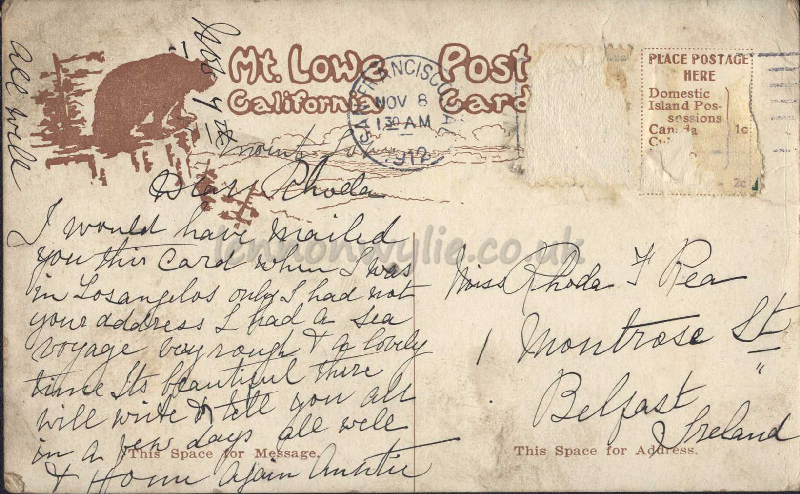 all well
Nov 7th
Mt. Lowe
California
Post
Card
SAN FRANCISCO, CAL
NOV 8
1 30 AM
1912
PLACE POSTAGE
HERE
Domestic
Island Pos-
sessions
Canada 1c
2c
Dear Rhoda
I would have mailed
you this card when I was
in Losangelos only I had not
your address I had a sea
voyage very rough & a lovely
time Its beautiful there
will write & tell you all
in a few days all well
& Home again Auntie
This Space for Message.
Miss Rhoda F Rea
1 Montrose St
Belfast
Ireland
This Space for Address.
lennonwylie.co.uk